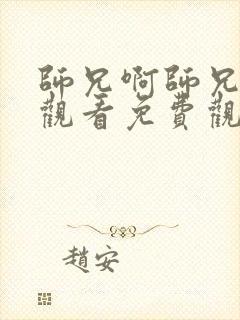 師兄啊師兄
觀看免費觀
趙安